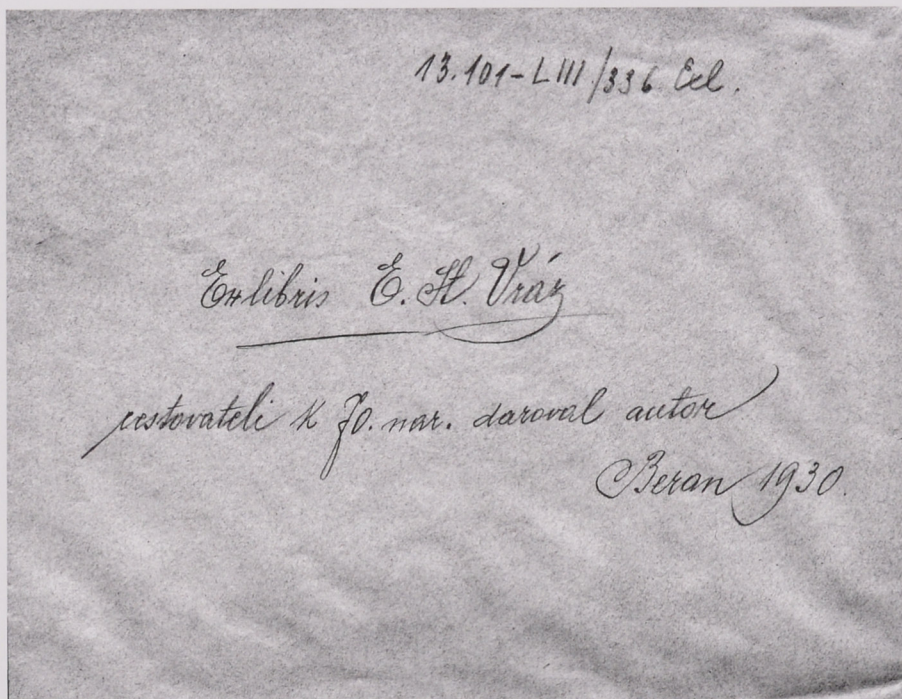 13.101-LIII/336 Exl.
Exlibris E. St. Vráz
cestovateli k 70. nar. daroval autor
Beran 1930.